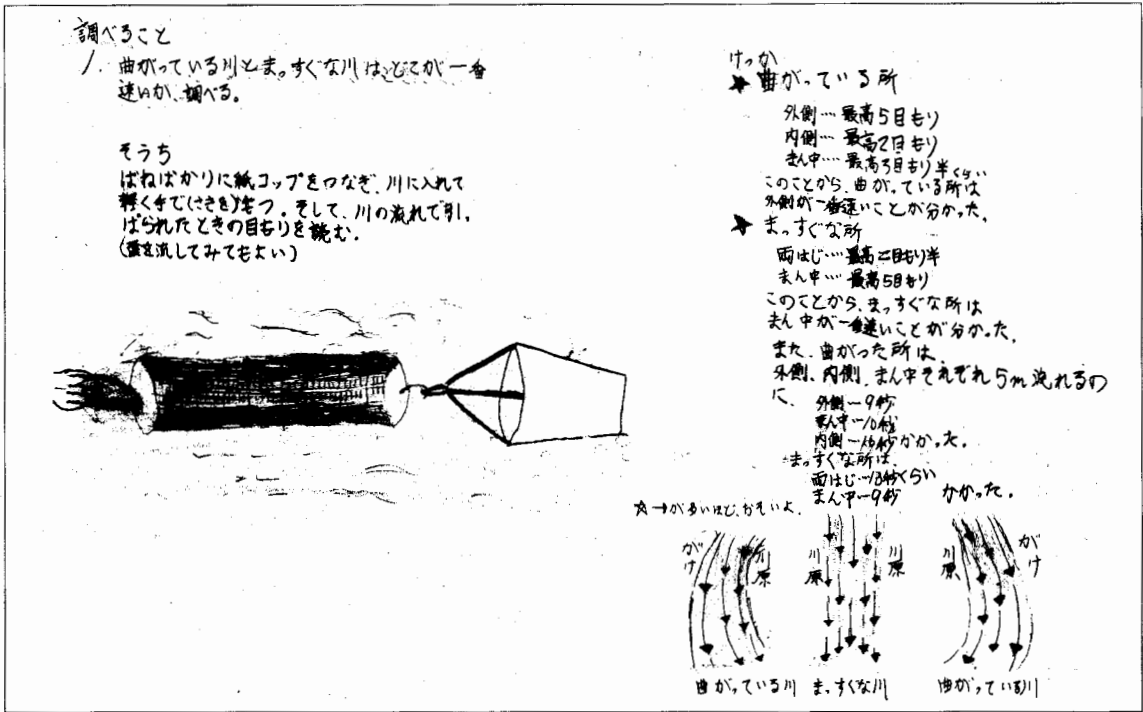 調べること
1. 曲がっている川とまっすぐな川はどこが一番
速いか、調べる。
そうち
ばねばかりに紙コップをつなぎ、川に入れて
軽く手で(さきを)もつ。そして、川の流れで引っ
ぱられたときの目もりを読む。
(葉を流してみてもよい)
けっか
★曲がっている所
外側…最高5目もり
内側…最高2目もり
まん中…最高3目もり半くらい
このことから、曲がっている所は
外側が一番速いことが分かった。
★まっすぐな所
両はじ…最高二目もり半
まん中…最高5目もり
このことから、まっすぐな所は
まん中が一番速いことが分かった。
また、曲がった所は、
外側、内側、まん中それぞれ5m流れるの
に、外側―9秒
まん中―10秒
内側―秒かかった。
まっすぐな所は、
両はじ―13秒くらい
まん中―9秒 かかった。
☆→が多いほど、おそいよ。
がけ 川原 川原 川原 川原 がけ
曲がっている川 まっすぐな川 曲がっている川